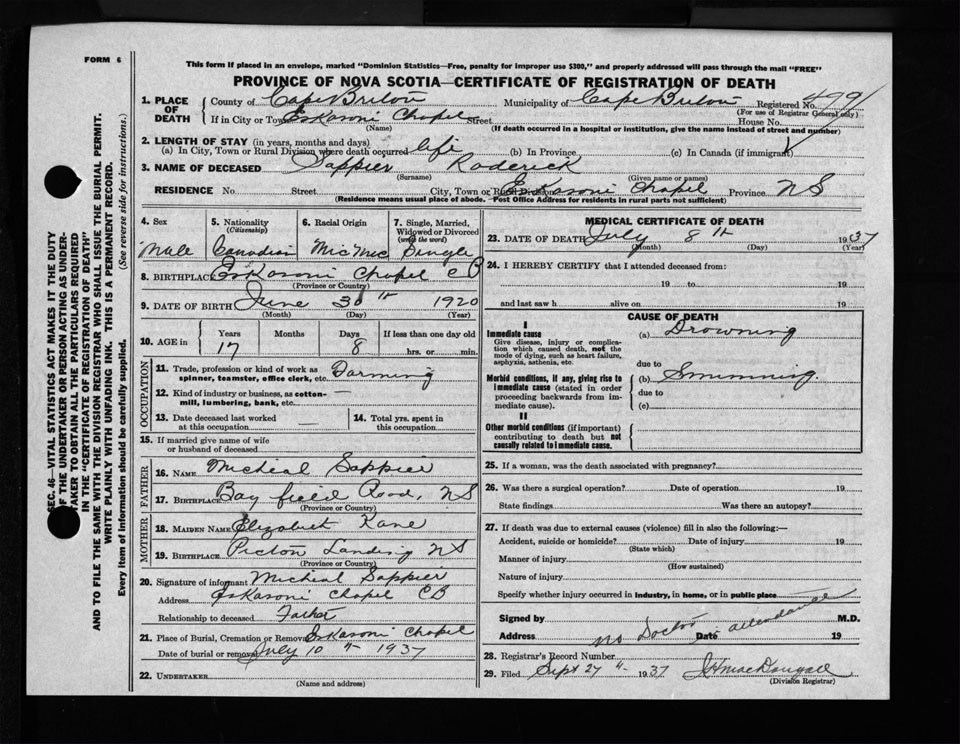 FORM 6
This form if placed in an envelope, marked "Dominion Statistics—Free, penalty for improper use $300," and properly addressed will pass through the mail "FREE"
PROVINCE OF NOVA SCOTIA—CERTIFICATE OF REGISTRATION OF DEATH
1. PLACE OF DEATH County of Cape Breton Municipality of Cape Breton Registered No. 4991
(For use of Registrar General only)
If in City or Town Eskasoni Chapel Street House No.
(Name) (If death occurred in a hospital or institution, give the name instead of street and number)
2. LENGTH OF STAY (in years, months and days)
(a) In City, Town or Rural Division where death occurred life (b) In Province (c) In Canada (if immigrant)
3. NAME OF DECEASED Sappier Roderick
(Surname) (Given name or names)
RESIDENCE No Street City, Town or Rural Division Eskasoni Chapel Province NS
(Residence means usual place of abode. Post Office Address for residents in rural parts not sufficient)
4. Sex Male
5. Nationality (Citizenship) Canadian
6. Racial Origin Mic Mic
7. Single, Married, Widowed or Divorced (write the word) Single
8. BIRTHPLACE Eskasoni Chapel CB
(Province or Country)
9. DATE OF BIRTH June 30th 1920
(Month) (Day) (Year)
10. AGE in Years 17 Months Days 8 If less than one day old hrs. or min.
OCCUPATION
11. Trade, profession or kind of work as spinner, teamster, office clerk, etc. Darming
12. Kind of industry or business, as cotton-mill, lumbering, bank, etc. —
13. Date deceased last worked at this occupation —
14. Total yrs. spent in this occupation
15. If married give name of wife or husband of deceased
FATHER
16. NAME Micheal Sappier
17. BIRTHPLACE Bay field Road, NS
(Province or Country)
MOTHER
18. MAIDEN NAME Elizabet Kane
19. BIRTHPLACE Picton Landing NS
(Province or Country)
20. Signature of informant Micheal Sappier
Address Eskasoni Chapel CB
Relationship to deceased Father
21. Place of Burial, Cremation or Removal Eskasoni Chapel
Date of burial or removal July 10th 1937
22. UNDERTAKER
(Name and address)
MEDICAL CERTIFICATE OF DEATH
23. DATE OF DEATH July 8th 1937
(Month) (Day) (Year)
24. I HEREBY CERTIFY that I attended deceased from:
19 to 19
and last saw h alive on 19
CAUSE OF DEATH
I
Immediate cause (a) Drowning
Give disease, injury or complication which caused death, not the mode of dying, such as heart failure, asphyxia, asthenia, etc.
due to
Morbid conditions, if any, giving rise to immediate cause (stated in order proceeding backwards from immediate cause). (b) Swimming
due to
(c)
II
Other morbid conditions (if important) contributing to death but not causally related to immediate cause.
25. If a woman, was the death associated with pregnancy?
26. Was there a surgical operation? Date of operation 19
State findings Was there an autopsy?
27. If death was due to external causes (violence) fill in also the following:—
Accident, suicide or homicide? Date of injury 19
(State which)
Manner of injury
(How sustained)
Nature of injury
Specify whether injury occurred in industry, in home, or in public place
Signed by M.D.
Address no Doctor Date in attendance 19
28. Registrar's Record Number
29. Filed Sept 27th 1937 J H MacDougall
(Division Registrar)
SEC. 46—VITAL STATISTICS ACT MAKES IT THE DUTY
OF THE UNDERTAKER OR PERSON ACTING AS UNDER-
TAKER TO OBTAIN ALL THE PARTICULARS REQUIRED
IN THE "CERTIFICATE OF REGISTRATION OF DEATH"
AND TO FILE THE SAME WITH THE DIVISION REGISTRAR WHO SHALL ISSUE THE BURIAL PERMIT.
WRITE PLAINLY WITH UNFADING INK. THIS IS A PERMANENT RECORD.
Every item of information should be carefully supplied. (See reverse side for instructions.)